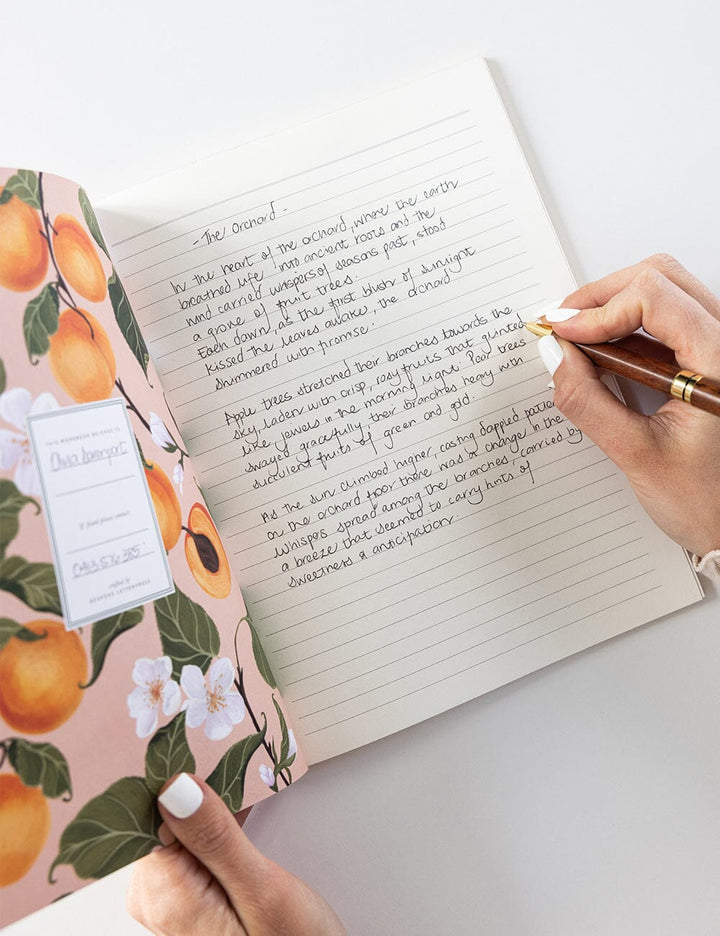 THIS NOTEBOOK BELONGS TO
Olivia Davenport
If found please contact
0413 576 385
crafted by
BESPOKE LETTERPRESS
- The Orchard -
In the heart of the orchard, where the earth
breathed life into ancient roots and the
wind carried whispers of seasons past, stood
a grove of fruit trees.
Each dawn, as the first blush of sunlight
kissed the leaves awake, the orchard
shimmered with promise.
Apple trees stretched their branches towards the
sky, laden with crisp, rosy fruits that glinted
like jewels in the morning light. Pear trees
swayed gracefully, their branches heavy with
succulent fruits of green and gold.
As the sun climbed higher, casting dappled
on the orchard floor there was a change in the
Whispers spread among the branches, carried by
a breeze that seemed to carry hints of
sweetness & anticipation.